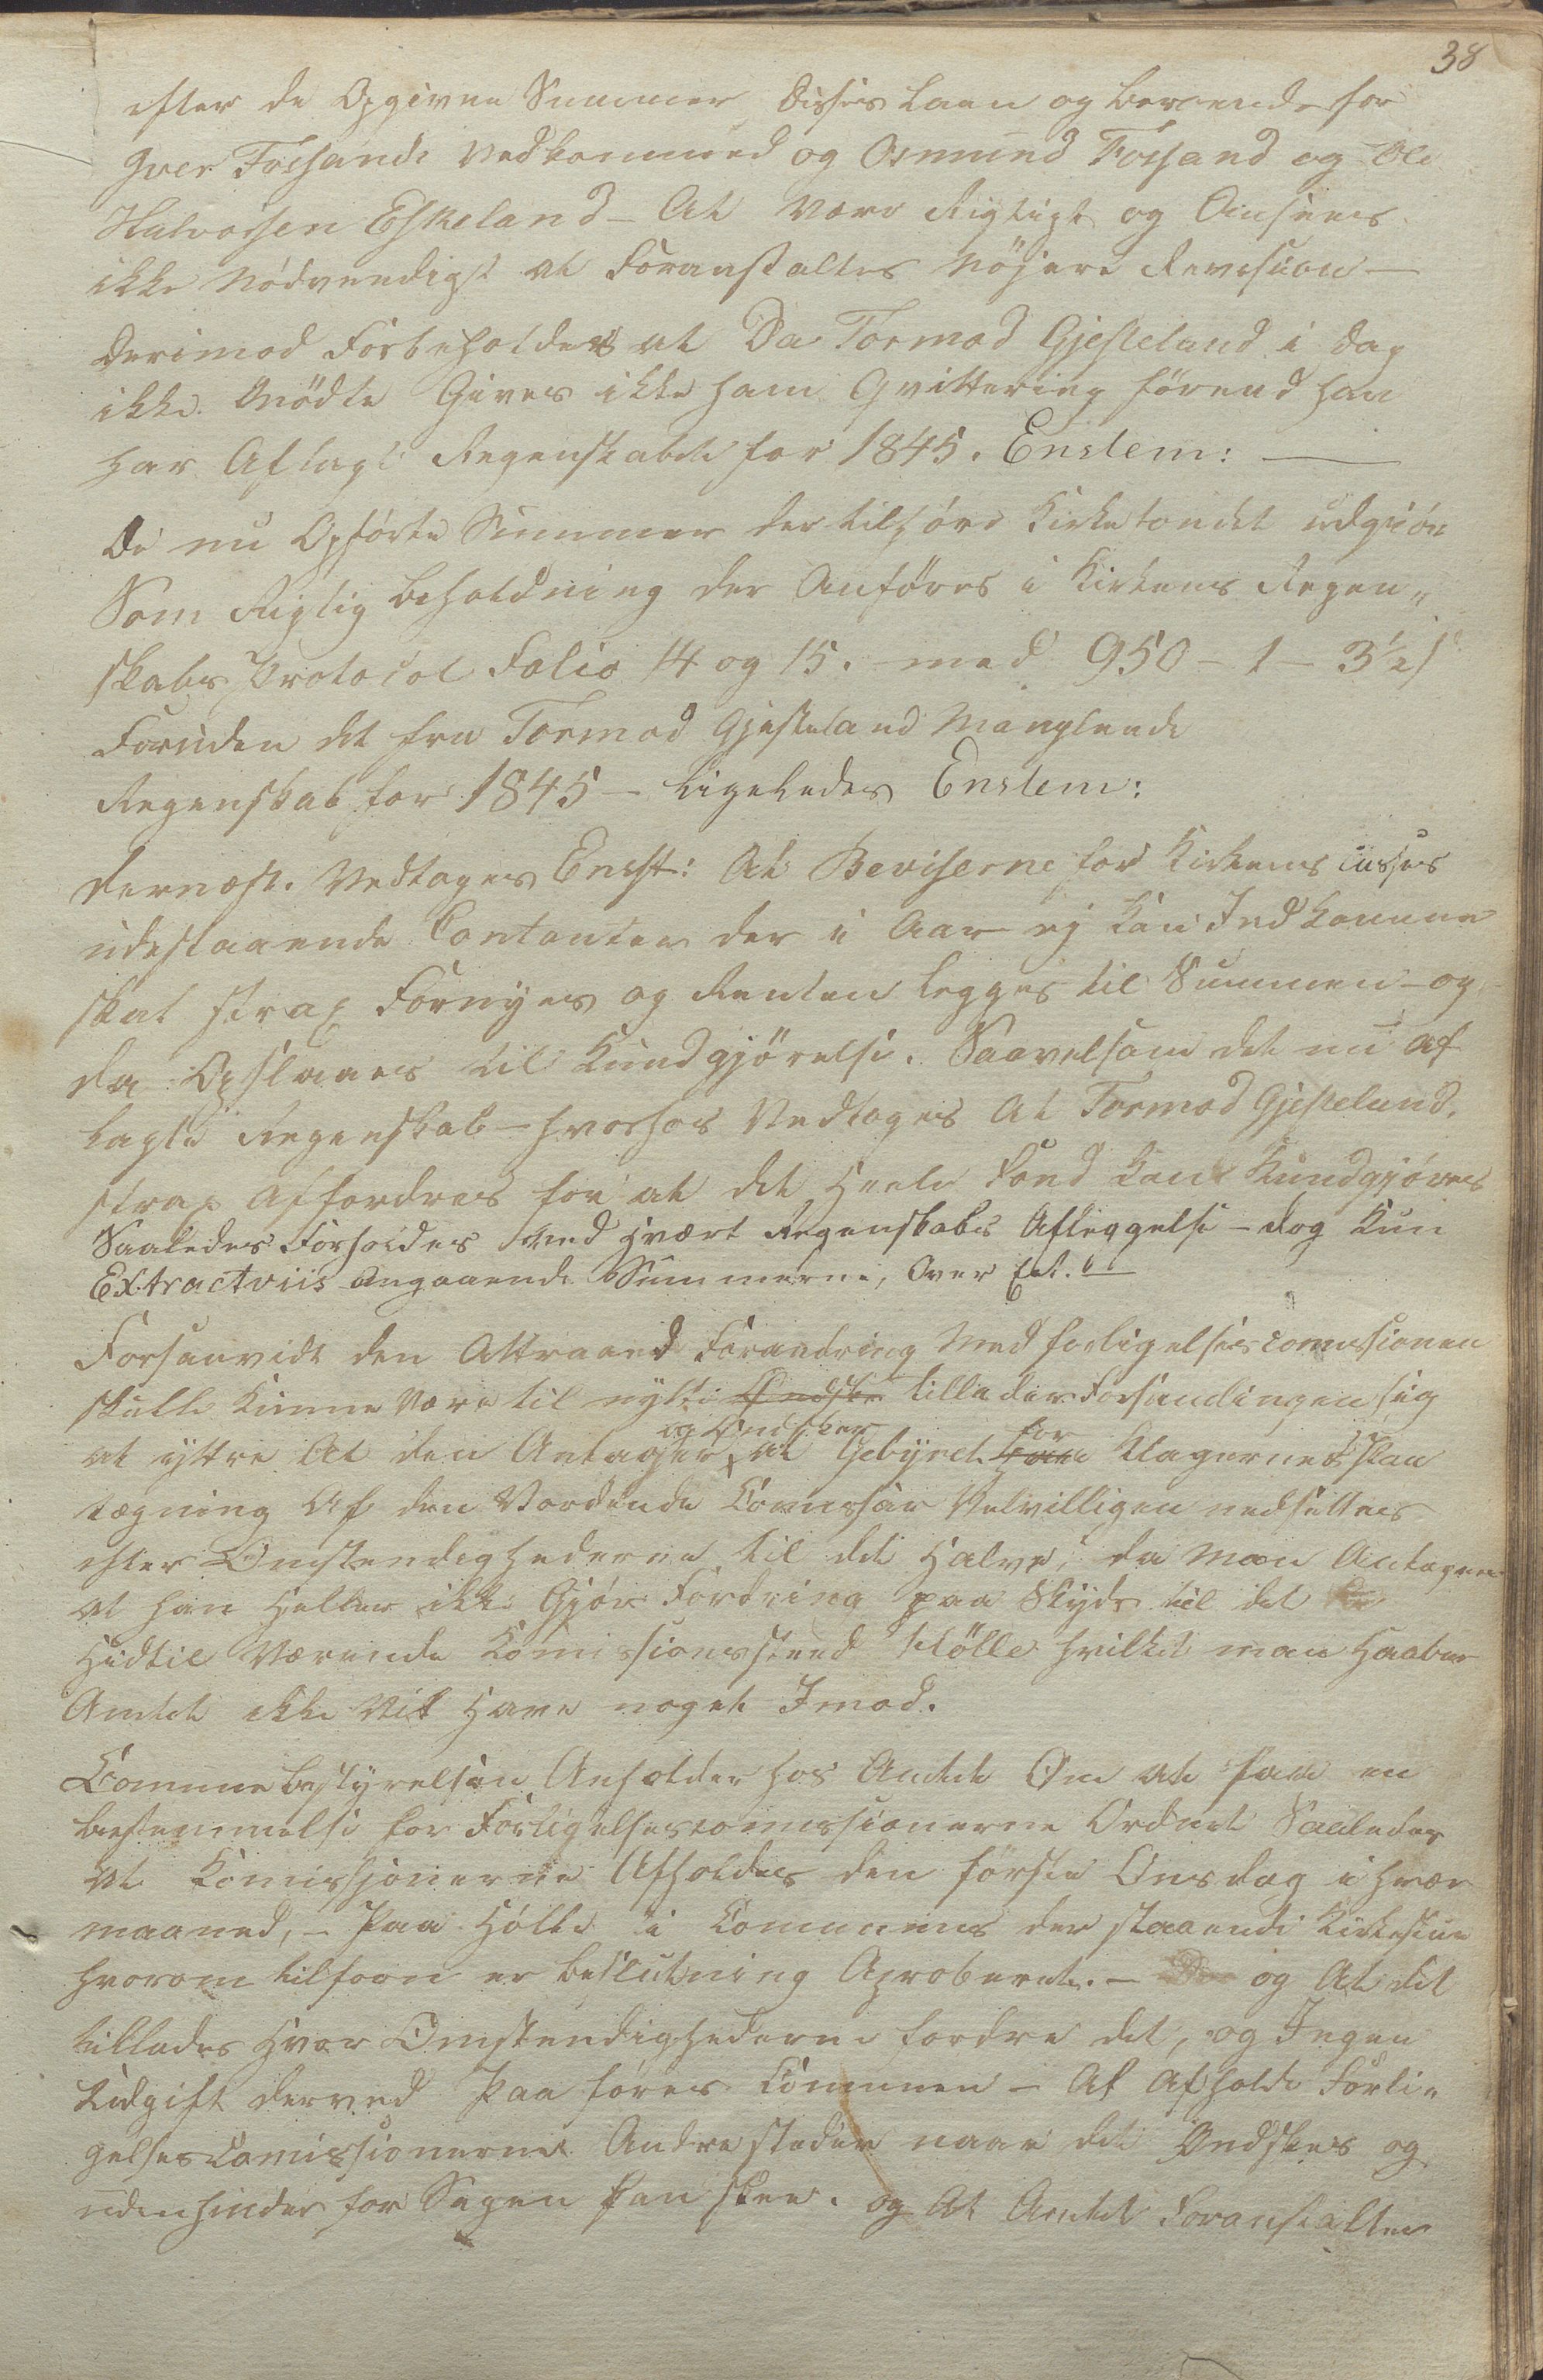 38
efter de Opgivne Summer Disses Laan og beroende for
Iver Fossande Vedkommed og Osmund Fossand og Ole
Halvorsen Eskeland - At være Rigtigt og Ansees
ikke Nödvendigt at Foranstaltes Nöjere Revision -
Derimod Forbeholdes at Da Tormod Gjesteland i dag
ikke Mödte Gives ikke ham Qvittering förend han
har Aflagt Regenskabet for 1845. Enstem: -
De nu Opförte Summer der tilhöre Kirkefondet udgiör
Som Rigtig beholdning der Anföres i Kirkens Regen„
skabs Protocol Folio 14 og 15. med 950 - 1 - 3½ s
Foruden det fra Tormod Gjesteland Manglende
Regenskab for 1845 - Ligeledes Enstem:
Dernæst. Vedtages Enst: At Beviserne for Kirkens
udestaaende Contanter der i Aar ej kan Indkomme
skal strax Fornyes og Renten legges til Summen - og
da Opslaaes til Kundgjörelse. Saavelsom det nu af
lagte Regenskab - hvorhos Vedtages At Tormod Gjesteland.
strax Affordres for at det Heele Fond kan Kundgjöres
Saaledes Forholdes Med Hvært Regenskabs Afleggelse - dog Kun
Extractviis angaaende Summerne, Over Et. "-
Forsaavidt den Attraaed Forandring Med forligelsescomissionen
skulle kunne Være til nytte Ønsker tillader Forsamlingen sig
at yttre At den Antager og Ønsker at Gebyret paa for Klagernes Paa
tegning Af den Vordende Comissær Velvilligen nedsettes
efter Omstendighederne til det Halve, da Man Antager
at han Heller ikke Gjör Fordring paa Skyds til det
Hidtil Værende Comissionssted Hölle hvilket man Haaber
Amtet ikke Vil Have noget Imod.
Communebestyrelsen Anholder hos Amtet Om at faae en
bestemmelse for Forligelsescomissionerne Ordnet Saaledes
At Comissjonerne Afholdes den förste Onsdag i hver
maaned, - Paa Hölle i Communens der staaende Kirkestue
hvorom tilforn er beslutning Aproberet. - og At det
tillades Hvor Omstendighederne fordre det, og Ingen
Udgift derved Paaföres Communen - At Afholde Forli„
gelsesComissionerne Andre steder naar det Ønskes og
uden hinder for Sagen kan skee. og At Amtet Foranstalter